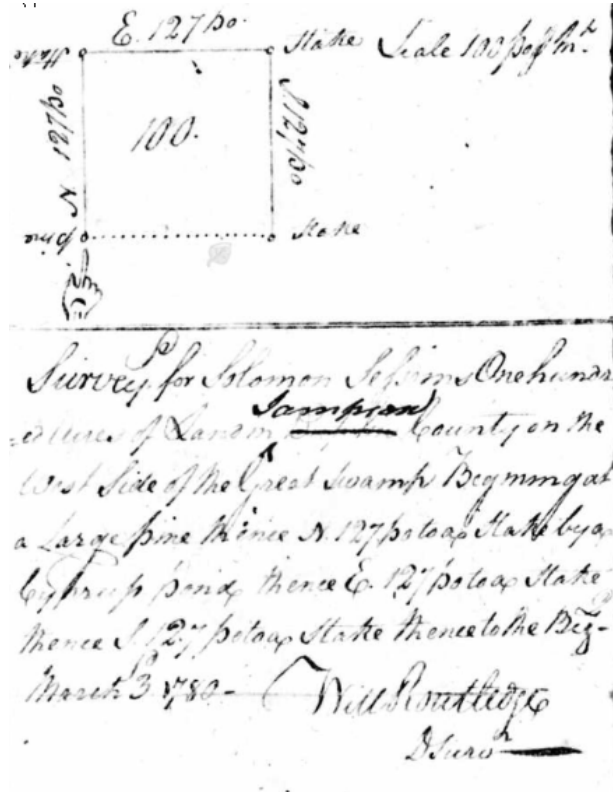 E. 127 po.
Stake
Stake
Scale 100 po pr Inch
N 127 po
100.
S 127 po
pine
Stake
Survey'd for Solomon Sessims One hundr
=ed Acres of Land in Sampson County on the
West Side of the Great Swamp Beginning at
a Large pine thence N. 127 po to a Stake by a
Cyprus pond thence E. 127 po to a Stake
thence S. 127 po to a Stake thence to the Beg-
March 3d 1780-
Will Routledge
D Survr